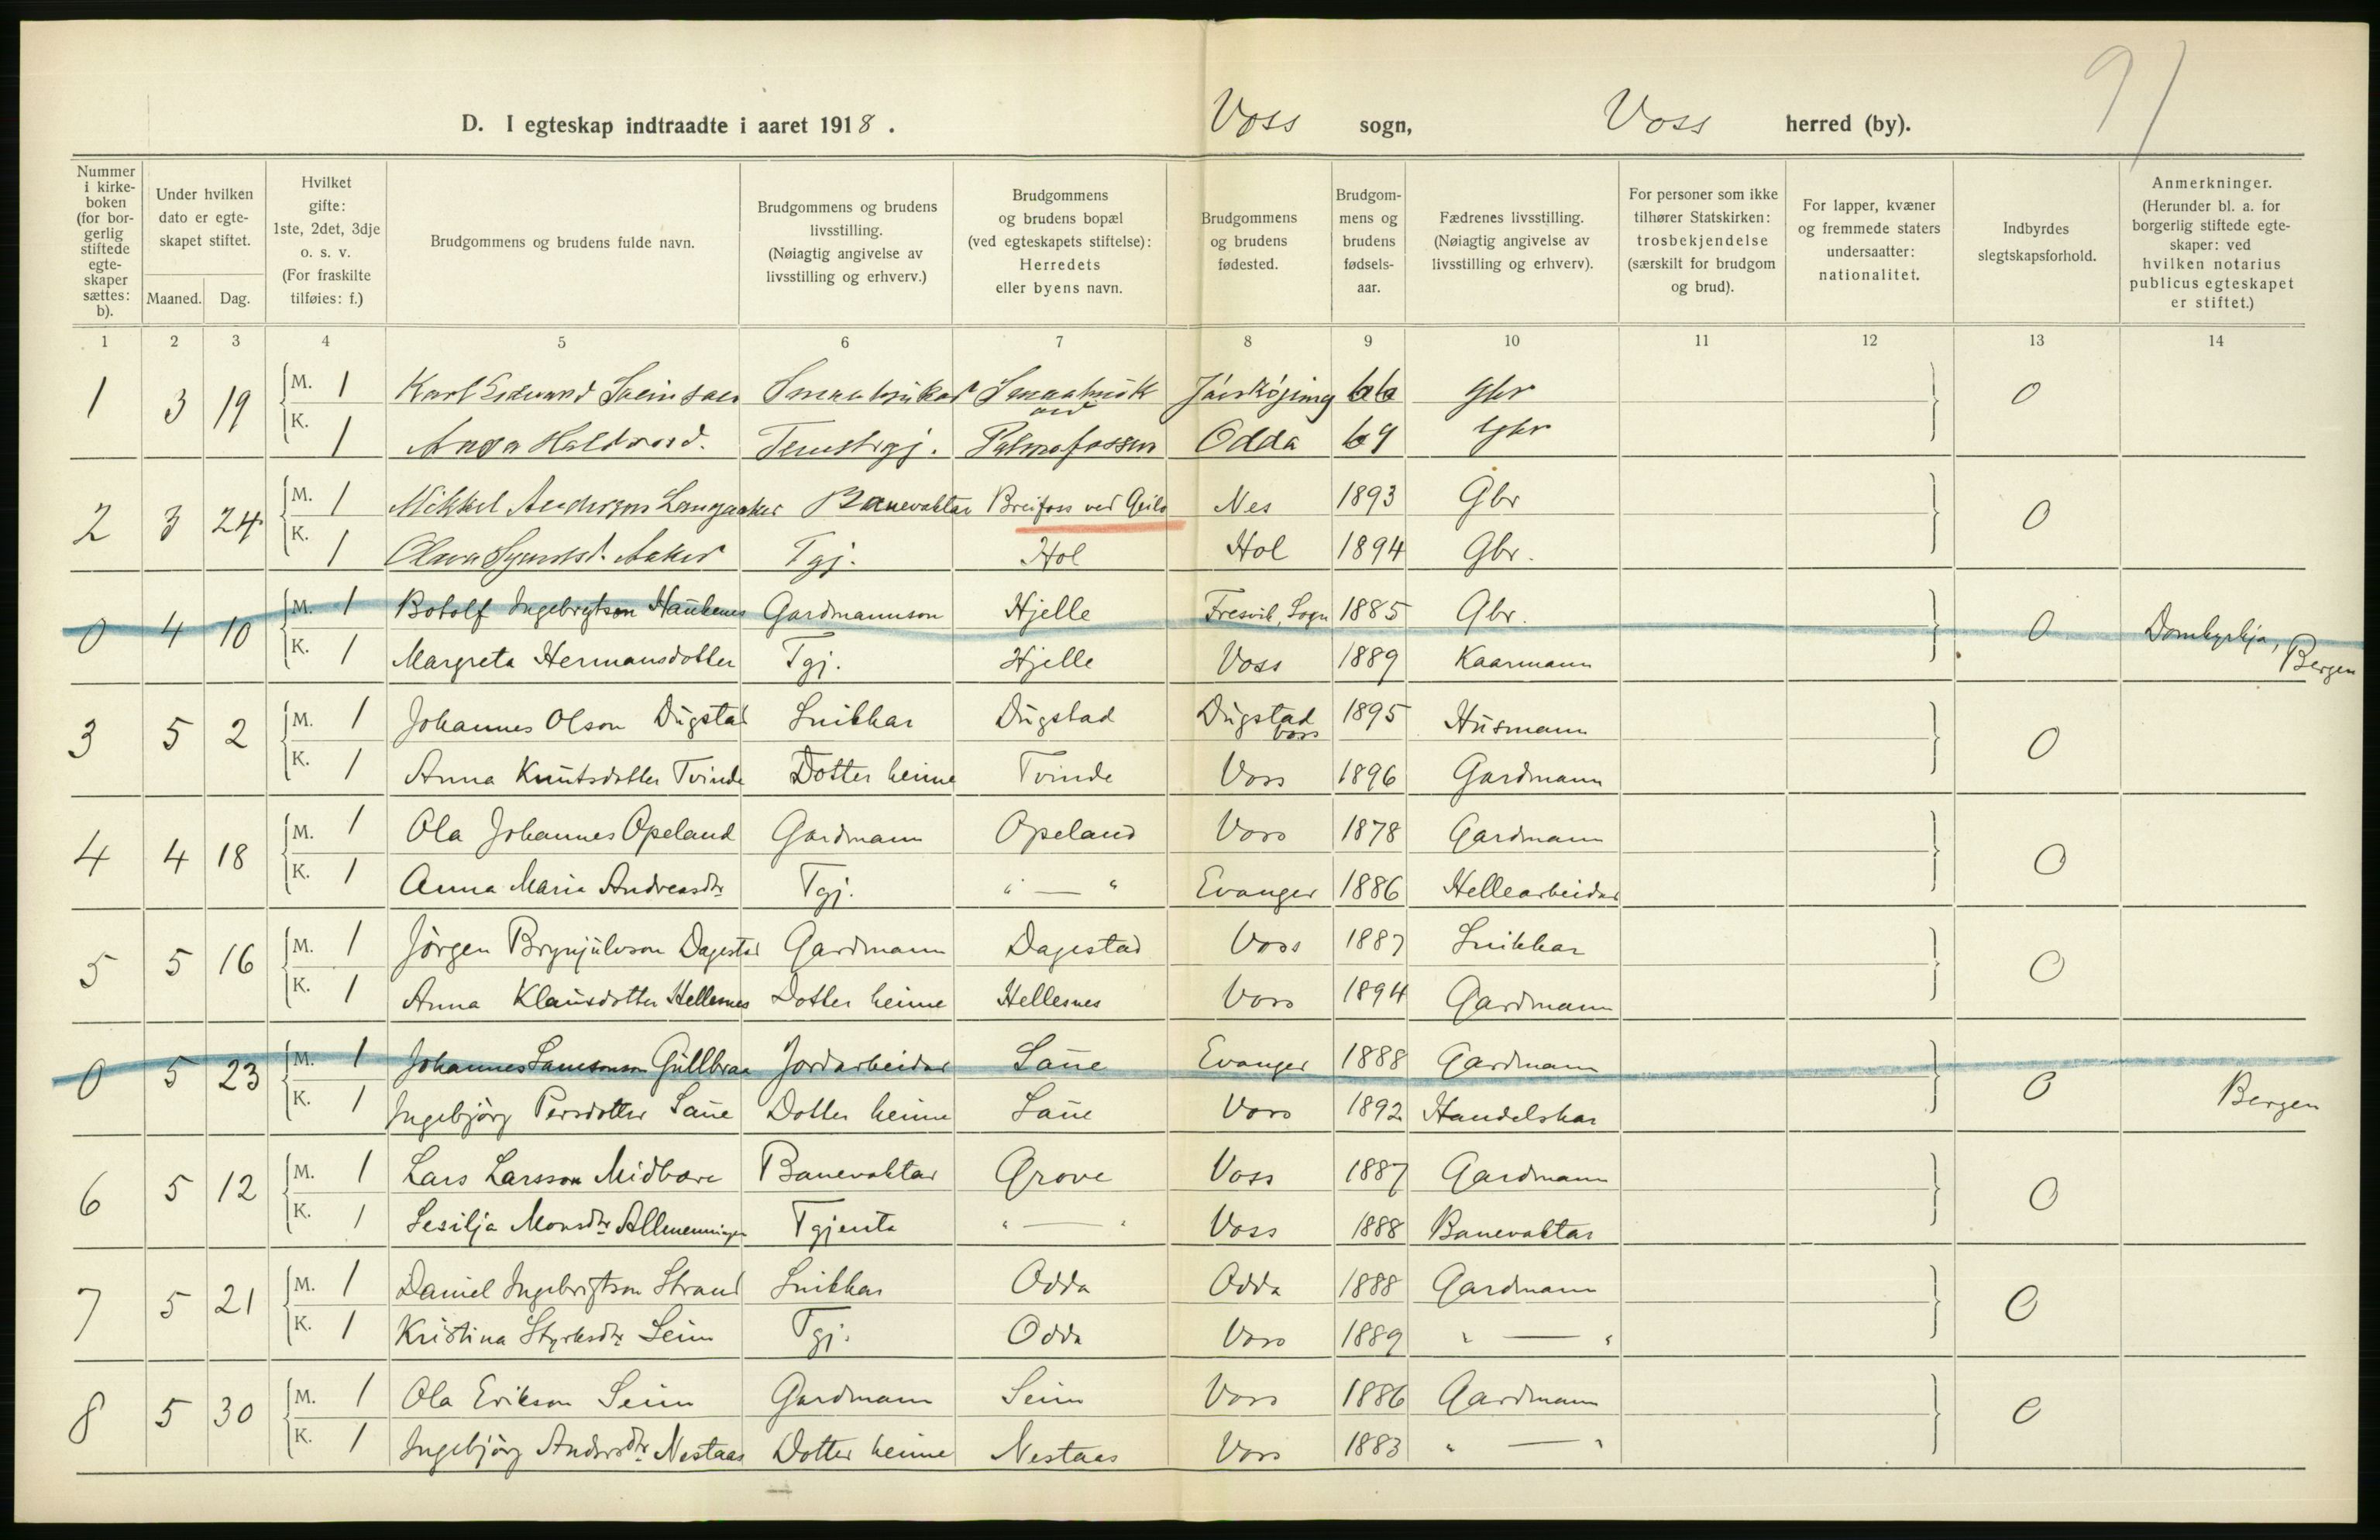 91
D. I egteskap indtraadte i aaret 1918. Voss sogn, Voss herred (by).
Nummer i kirkeboken (for borgerlig stiftede egteskaper sættes: b).
Under hvilken dato er egteskapet stiftet.
Maaned. Dag.
Hvilket gifte: 1ste, 2det, 3dje o. s. v. (For fraskilte tilføies: f.)
Brudgommens og brudens fulde navn.
Brudgommens og brudens livsstilling. (Nøiagtig angivelse av livsstilling og erhverv.)
Brudgommens og brudens bopæl (ved egteskapets stiftelse): Herredets eller byens navn.
Brudgommens og brudens fødested.
Brudgommens og brudens fødselsaar.
Fædrenes livsstilling. (Nøiagtig angivelse av livsstilling og erhverv).
For personer som ikke tilhører Statskirken: trosbekjendelse (særskilt for brudgom og brud).
For lapper, kvæner og fremmede staters undersaatter: nationalitet.
Indbyrdes slegtskapsforhold.
Anmerkninger. (Herunder bl. a. for borgerlig stiftede egteskaper: ved hvilken notarius publicus egteskapet er stiftet.)
1 2 3 4 5 6 7 8 9 10 11 12 13 14
1 3 19 M. 1 Karl Smaabrukar 66 Gbr 0
K. 1 Anna Tenestgj. ved Palmafossen Odda 69 Gbr
2 3 24 M. 1 Mikkel Anderson Langaaker Banevaktar Breifoss ved Geilo Nes 1893 Gbr 0
K. 1 Tgj. Hol Hol 1894 Gbr.
0 4 10 M. 1 Botolf Ingebrigtson Haukenes Gardmannson Hjelle Fresvik, Sogn 1885 Gbr. 0 Domkyrkja, Bergen
K. 1 Margreta Hermansdotter Tgj. Hjelle Voss 1889 Kaarmann
3 5 2 M. 1 Johannes Olson Dugstad Snikkar Dugstad Dugstad Voss 1895 Husmann 0
K. 1 Anna Knutsdotter Tvinde Dotter heime Tvinde Voss 1896 Gardmann
4 4 18 M. 1 Ola Johannes Opeland Gardmann Opeland Voss 1878 Gardmann 0
K. 1 Anna Maria Andreasdtr Tgj. " — " Evanger 1886 Hellearbeidar
5 5 16 M. 1 Jørgen Brynjulvson Dagestad Gardmann Dagestad Voss 1887 Snikkar 0
K. 1 Anna Klausdotter Hellesnes Dotter heime Hellesnes Voss 1894 Gardmann
0 5 23 M. 1 Johannes Samsonson Gullbraa Jordarbeidar Saue Evanger 1888 Gardmann 0 Bergen
K. 1 Ingebjørg Persdotter Saue Dotter heime Saue Voss 1892 Handelskar
6 5 12 M. 1 Lars Larsson Midbøre Banevaktar Grove Voss 1887 Gardmann 0
K. 1 Sesilja Monsdtr Allmenningen Tgjenta " — " Voss 1888 Banevaktar
7 5 21 M. 1 Daniel Ingebrigtson Strand Snikkar Odda Odda 1888 Gardmann 0
K. 1 Kristina Styrksdtr Seim Tgj. Odda Voss 1889 " — "
8 5 30 M. 1 Ola Erikson Seim Gardmann Seim Voss 1886 Gardmann 0
K. 1 Ingebjørg Andersdtr Nestaas Dotter heime Nestaas Voss 1883 " — "